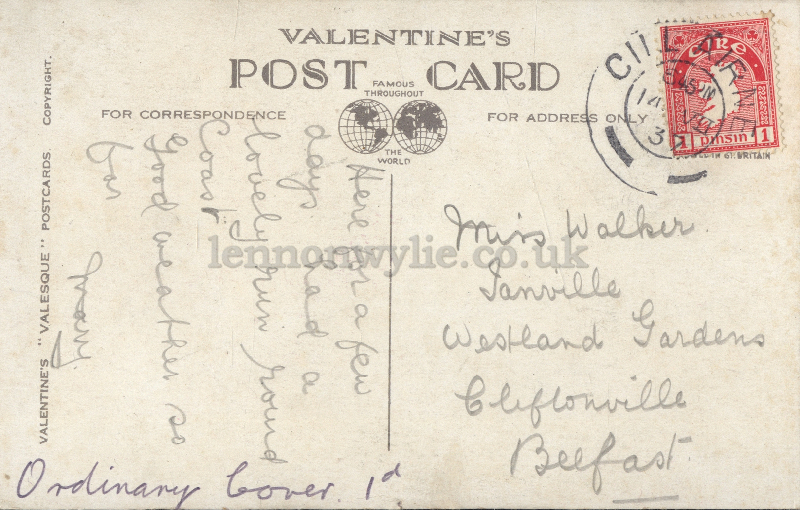 VALENTINE'S
POST CARD
FAMOUS
THROUGHOUT
THE
WORLD
FOR CORRESPONDENCE
FOR ADDRESS ONLY
VALENTINE'S "VALESQUE" POSTCARDS COPYRIGHT.
Here for a few
days had a
lovely run round
Coast
Good weather so
far
Mary
Miss Walker.
Ianville
Westland Gardens
Cliftonville
Belfast.
Ordinary Cover 1d
CILL AIRNE
éire
1 pinsin 1
IN GT. BRITAIN
lennonwylie.co.uk